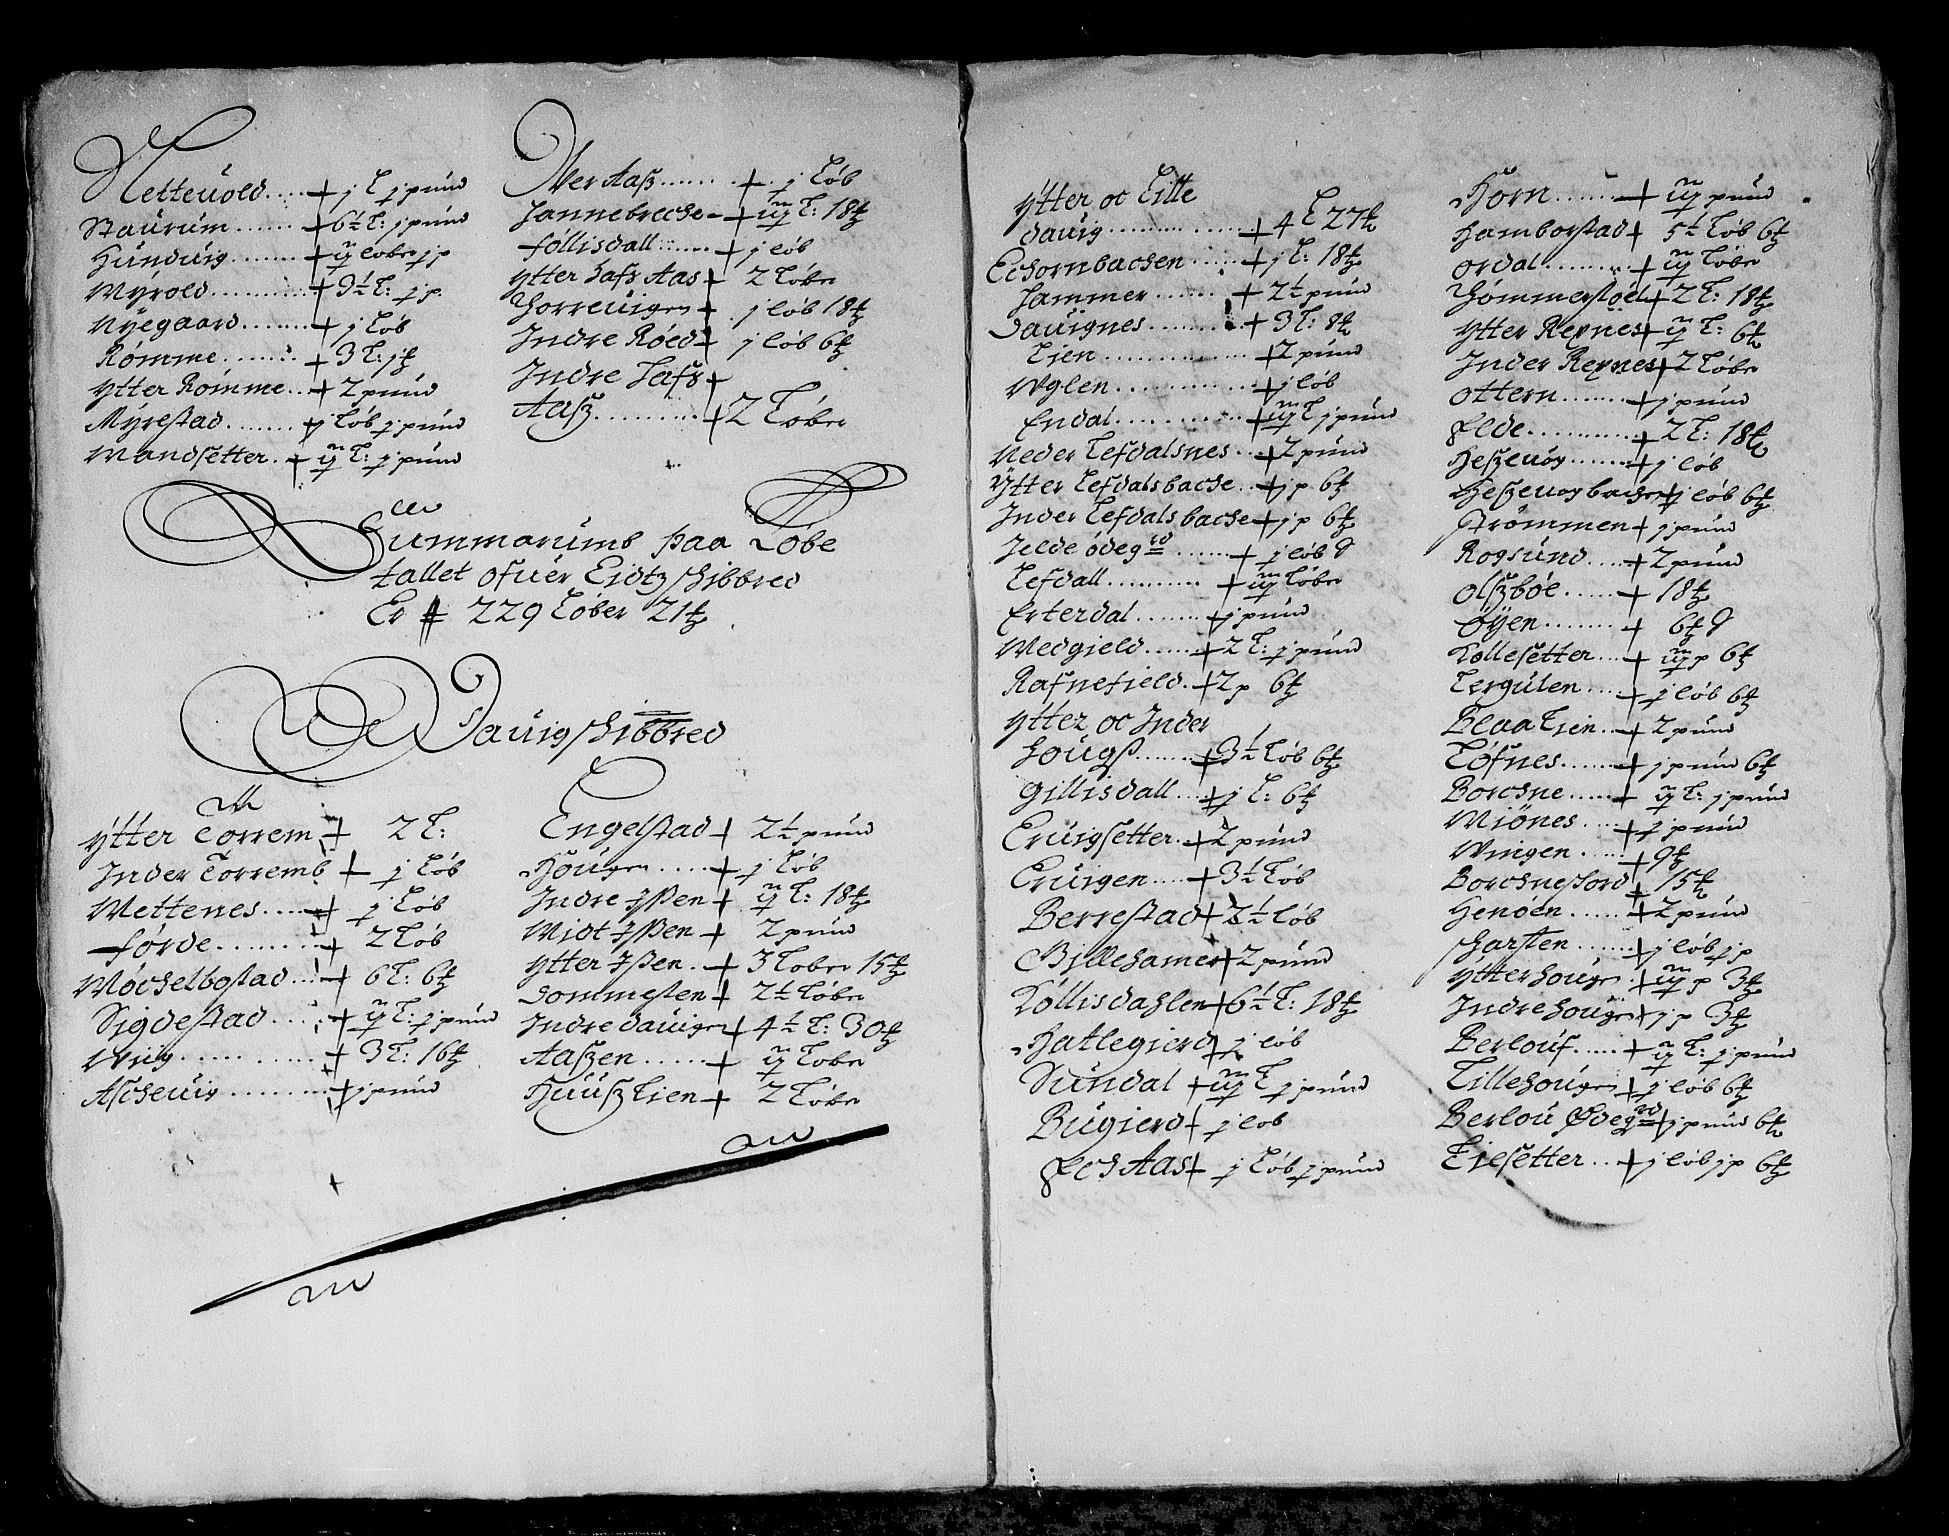 Netteuold j L j pund
Staurum 6½ L: j pund
Hunduig ij løber j p
Myrold 3½ L: j p
Nyegaard j Løb
Rømme 3 L: j ℔
Ytter Rømme 2 pund
Myrestad j Løb j pund
Wandsetter ij L: j pund
Øfuer Aaß j Løb
Jannebreche iij L: 18 ℔
føllisdall j løb
Ytter Hafs Aas 2 Løber
Thorreuigen j løb 18 ℔
Indre Røed j løb 6 ℔
Indre Hafs
Aaß 2 Løber
Summarumb paa Løbe
tallet ofuer Eidtz skibbred
Er 229 Løber 21 ℔
Dauig skibbred
Ytter Torrem 2 L:
Inder Torremb j Løb
Wettenes j Løb
førde 2 Løb
Møchelbostad 6 L: 6 ℔
Sigdestad ij L: j pund
Wiig 3 L: 16 ℔
Ascheuig j pund
Engelstad 2½ pund
Hougen j Løb
Indre Ißen ij L: 18 ℔
Midt Ißen 2 pund
Ytter Ißen 3 Løber 15 ℔
Dommesten 2½ Løber
Indre dauigen 4½ L: 30 ℔
Aaßen ij Løber
Huuß Lien 2 Løber
Ytter oc Lille
Dauig 4 L 27 ℔
Echornbachen j L: 18 ℔
Hammer 2½ pund
Dauignes 3 L: 8 ℔
Lien 2 pund
Wglen j løb
Endal iij L j pund
Neder Lefdalsnes 2 pund
Ytter Lefdalsbache j p 6 ℔
Inder Lefdalsbache j p 6 ℔
Jelde ødeg rd j løb
Lefdall iij Løber
Erterdal j pund
Wedgield 2 L: j pund
Rafnefield 2 p 6 ℔
Ytter oc Inder
Hougß 3½ Løb 6 ℔
Gillisdall j L: 6 ℔
Eruigsetter 2 pund
Eruigen 3½ Løb
Berrestad 2½ Løb
Billehamer 2 pund
Køllisdahlen 6½ L: 18 ℔
Hatlegierd j løb
Sundal iij L j pund
Bugierd j løb
Ech Aas j Løb j pund
Horn iij pund
Hamborstad 5½ Løb 6 ℔
Ordal iij Løber
Hommerstøel 2 L: 18 ℔
Ytter Reynes ij L: 6 ℔
Inder Reynes 2 Løber
Ottern j pund
Elde 2 L: 18 ℔
Heßeuog j løb
Heßeuog bachen j løb 6 ℔
Strømmen j pund
Rogsund 2 pund
Olßbøe 18 ℔
Øyen 6 ℔
Kollesetter iij p 6 ℔
Lergulen j løb 6 ℔
Blaa Lien 2 pund
Løfnes j pund 6 ℔
Borchne ij L: j pund
Miønes j pund
Wingen 9 ℔
Borchnefiord 15 ℔
Henøen 2 pund
Skarsten j løb j p
Ytterhougen iij p 3 ℔
Indrehougen j p 3 ℔
Berlouf ij L: j pund
Lillehougen j løb 6 ℔
Berlou Ødeg rd j pund 6 ℔
Liesetter j løb j p 6 ℔